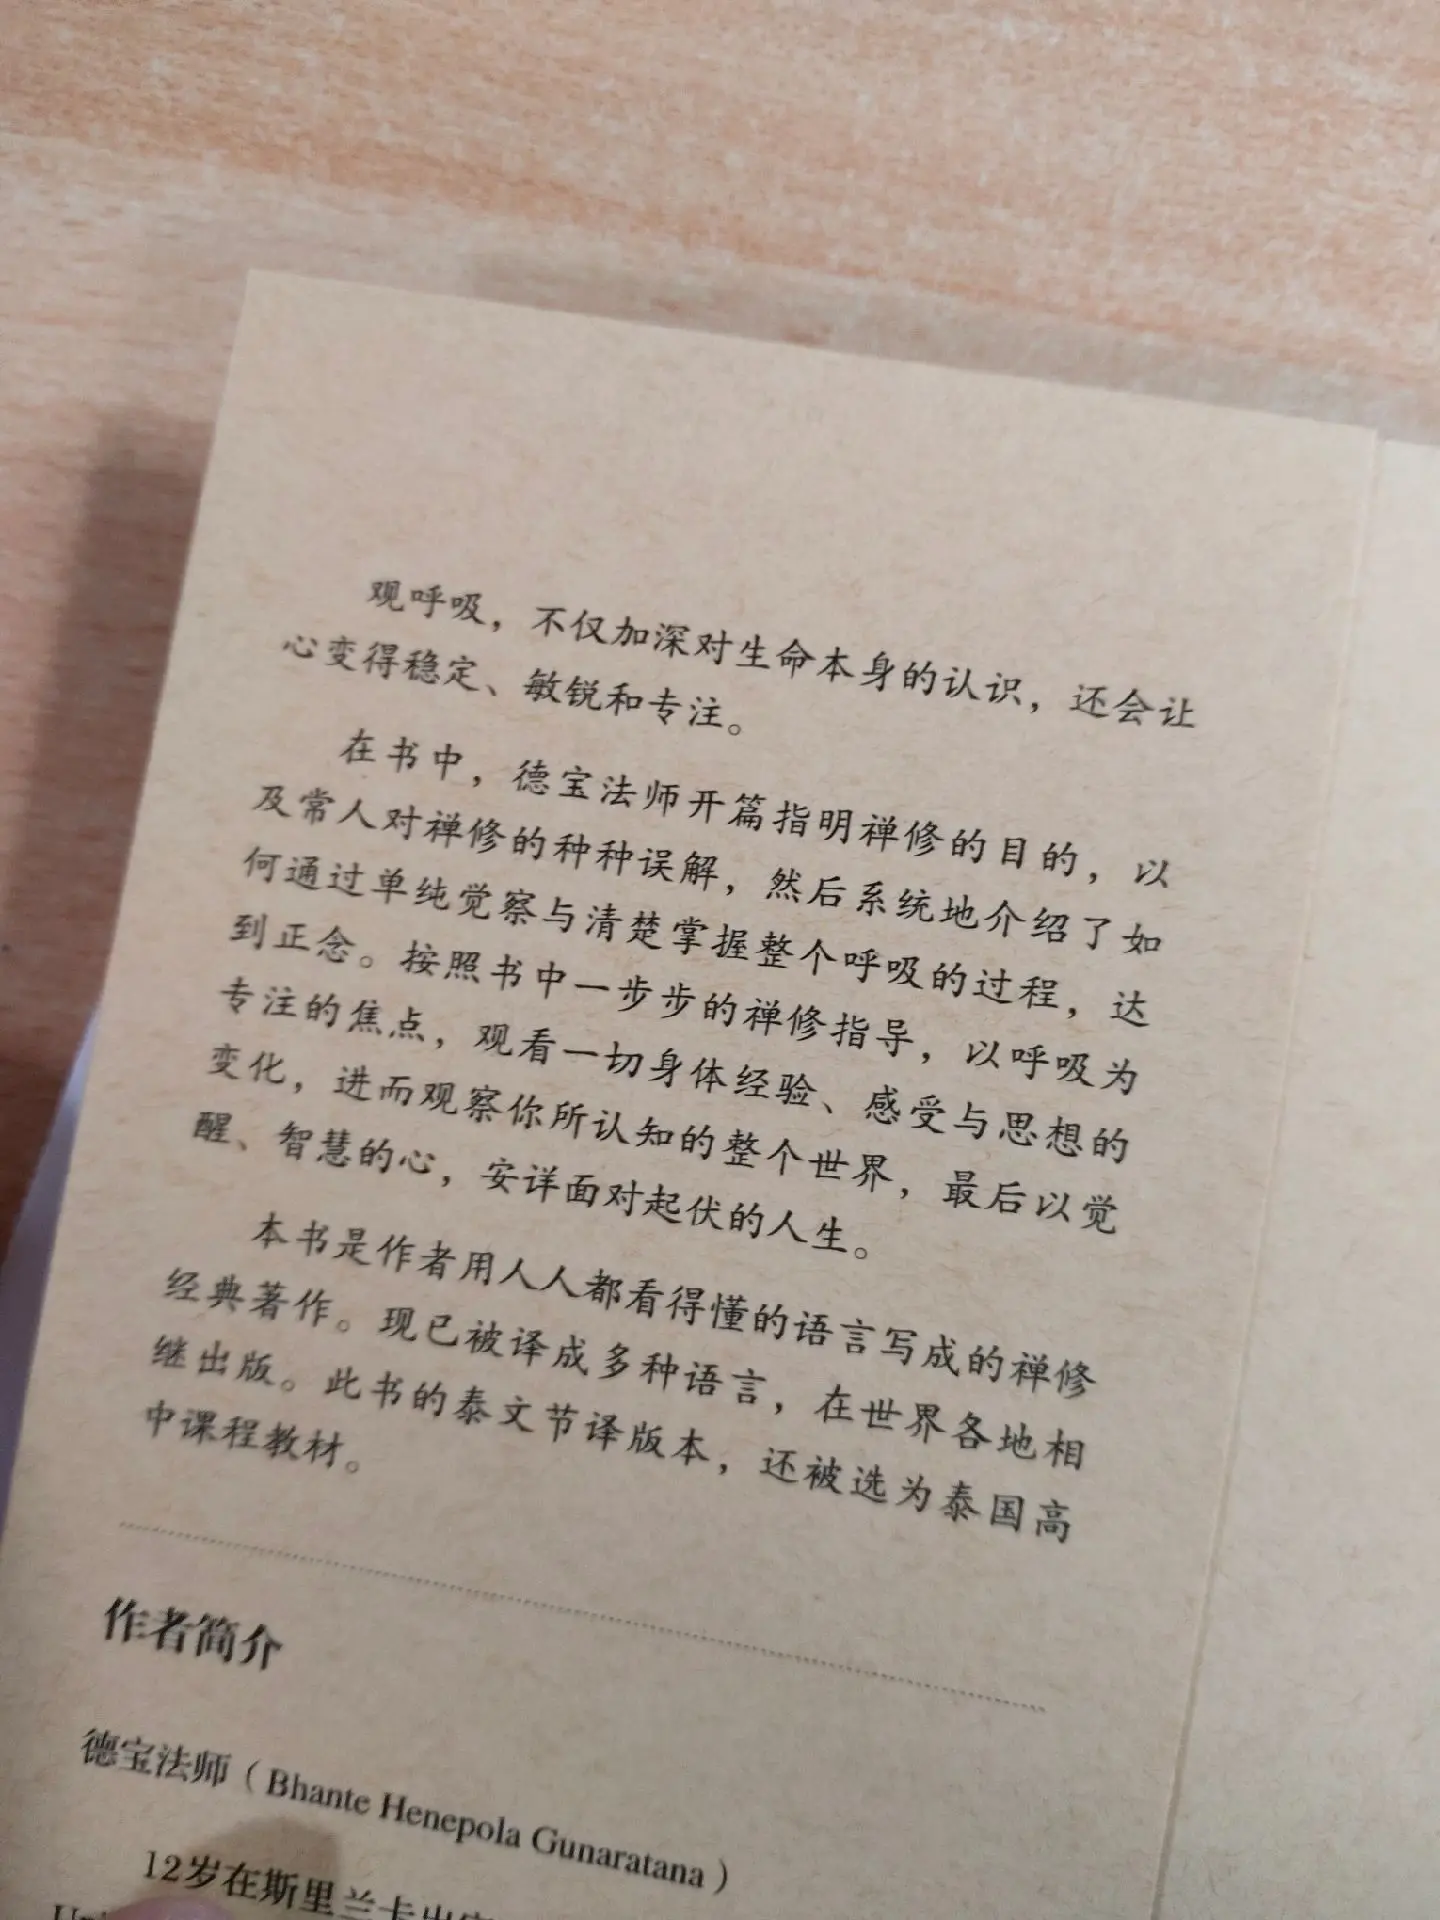 观呼吸，不仅加深对生命本身的认识，还会让
心变得稳定、敏锐和专注。
在书中，德宝法师开篇指明禅修的目的，以
及常人对禅修的种种误解，然后系统地介绍了如
何通过单纯觉察与清楚掌握整个呼吸的过程，达
到正念。按照书中一步步的禅修指导，以呼吸为
专注的焦点，观看一切身体经验、感受与思想的
变化，进而观察你所认知的整个世界，最后以觉
醒、智慧的心，安详面对起伏的人生。
本书是作者用人人都看得懂的语言写成的禅修
经典著作。现已被译成多种语言，在世界各地相
继出版。此书的泰文节译版本，还被选为泰国高
中课程教材。
作者简介
德宝法师（Bhante Henepola Gunaratana）
12岁在斯里兰卡出